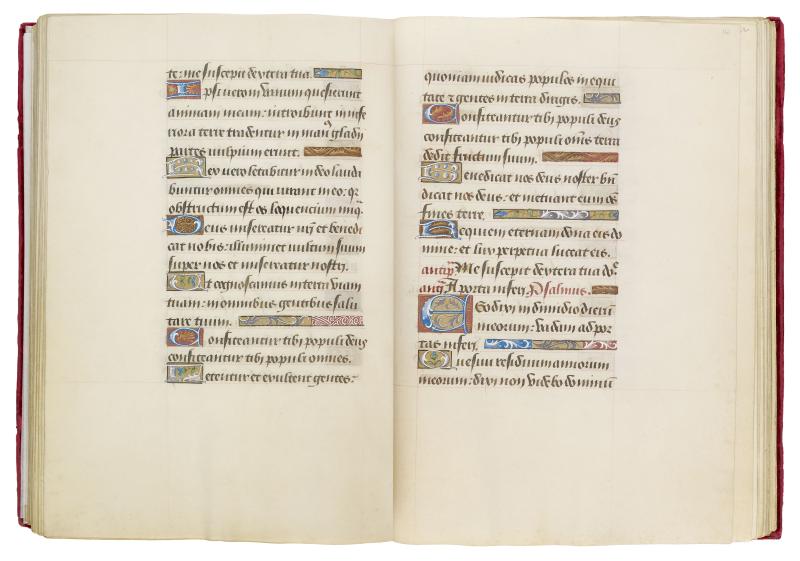 te: me suscepit dextera tua.
Ipsi vero in vanum quesierunt
animam meam: introibunt in infe
riora terre tradentur in manꝰ gladii
partes vulpium erunt.
Rex vero letabitur in deo lauda
buntur omnes qui iurant in eo: qꝛ
obstructum est os loquencium iniq̃.
Deus misereatur nr̃i et benedi
cat nobis: illuminet vultum suum
super nos et misereatur nostri.
Ut cognoscamus in terra viam
tuam: in omnibus gentibus salu
tare tuum.
Confiteantur tibi populi deus
confiteantur tibi populi omnes.
Letentur et exultent gentes:
quoniam iudicas populos in equi
tate ⁊ gentes in terra dirigis.
Confiteantur tibi populi deus
confiteantur tibi populi om̃s terra
dedit fructum suum.
Benedicat nos deus noster bñ
dicat nos deus: et metuant eum oēs
fines terre.
Requiem eternam dona eis do
mine: et lux perpetua luceat eis.
antiph̃ Me suscepit dextera tua dñe
anã A porta inferi. Psalmus.
Ego dixi in dimidio dierũ
meorum: vadam ad por
tas inferi.
Quesivi residuum annorum
meorum: dixi non videbo dominũ